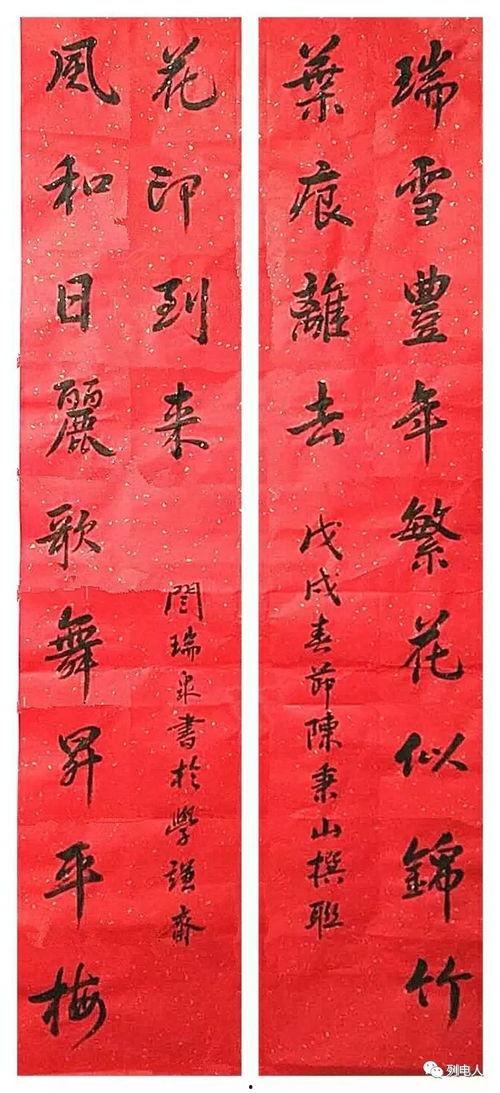 瑞雪豐年繁花似錦竹
葉痕離去
戊戌春節陳秉山撰聯
風和日麗歌舞昇平梅
花印到来
閆瑞泉書於學謙齋
列电人